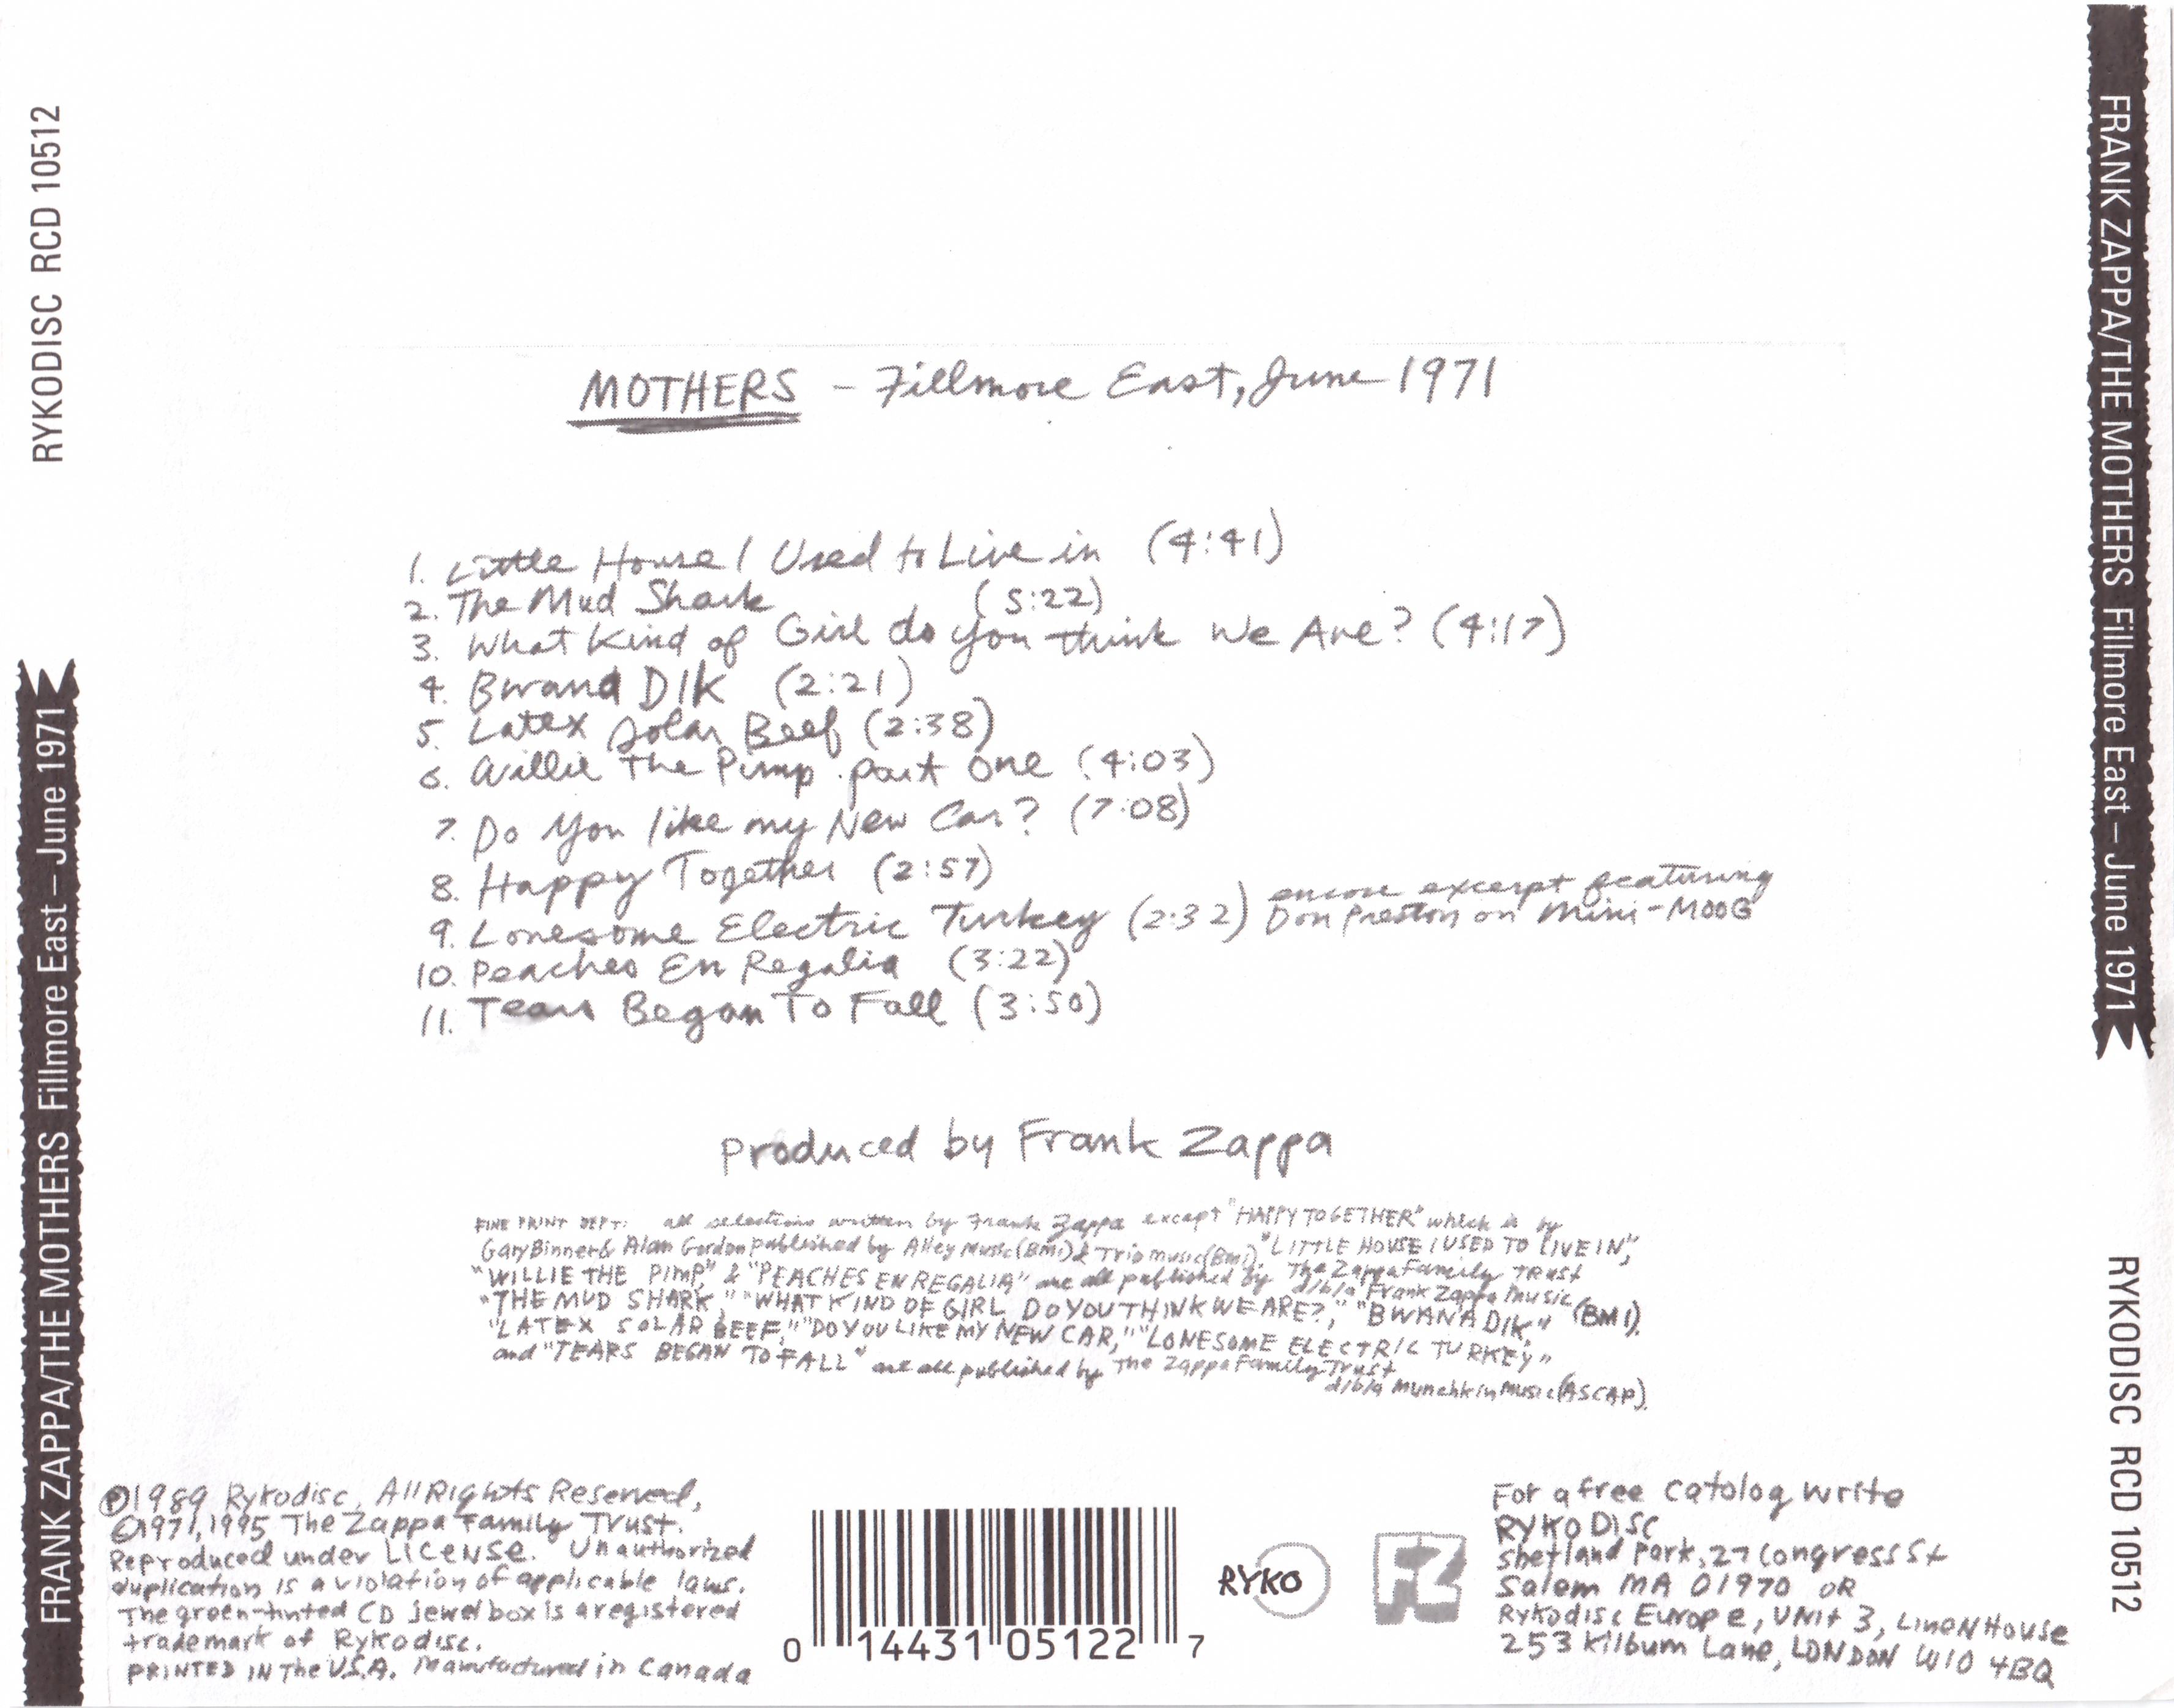 RYKODISC RCD 10512
FRANK ZAPPA/THE MOTHERS Fillmore East – June 1971
MOTHERS – Fillmore East, June 1971
1. Little House I Used to Live in (4:41)
2. The Mud Shark (5:22)
3. What Kind of Girl do you think We Are? (4:17)
4. Bwana DIK (2:21)
5. Latex Solar Beef (2:38)
6. Willie The Pimp part one (4:03)
7. Do You like my New Car? (7:08)
8. Happy Together (2:57)
9. Lonesome Electric Turkey (2:32) encore excerpt featuring
Don Preston on Mini-MOOG
10. Peaches En Regalia (3:22)
11. Tears Began To Fall (3:50)
produced by Frank Zappa
FINE PRINT DEPT: all selections written by Frank Zappa except "HAPPY TOGETHER" which is by
Gary Binner & Alan Gordon published by Alley Music (BMI) & Trio music (BMI). "LITTLE HOUSE I USED TO LIVE IN",
"WILLIE THE PIMP," & "PEACHES EN REGALIA" are all published by The Zappa Family Trust
d/b/a Frank Zappa Music (BMI).
"THE MUD SHARK," "WHAT KIND OF GIRL DO YOU THINK WE ARE?," "BWANA DIK,"
"LATEX SOLAR BEEF," "DO YOU LIKE MY NEW CAR," "LONESOME ELECTRIC TURKEY"
and "TEARS BEGAN TO FALL" are all published by The Zappa Family Trust
d/b/a Munchkin Music (ASCAP).
℗1989 Rykodisc, All Rights Reserved,
©1971, 1995 The Zappa Family Trust.
Reproduced under License. Unauthorized
duplication is a violation of applicable laws.
The green-tinted CD jewel box is a registered
trademark of Rykodisc.
PRINTED IN The U.S.A. Manufactured in Canada
0 14431 05122 7
RYKO
FZ
For a free catalog write
RYKODISC
Shetland Park, 27 Congress St
Salem MA 01970 OR
Rykodisc Europe, UNit 3, LinenHouse
253 Kilburn Lane, LONDON W10 4BQ
FRANK ZAPPA/THE MOTHERS Fillmore East – June 1971
RYKODISC RCD 10512